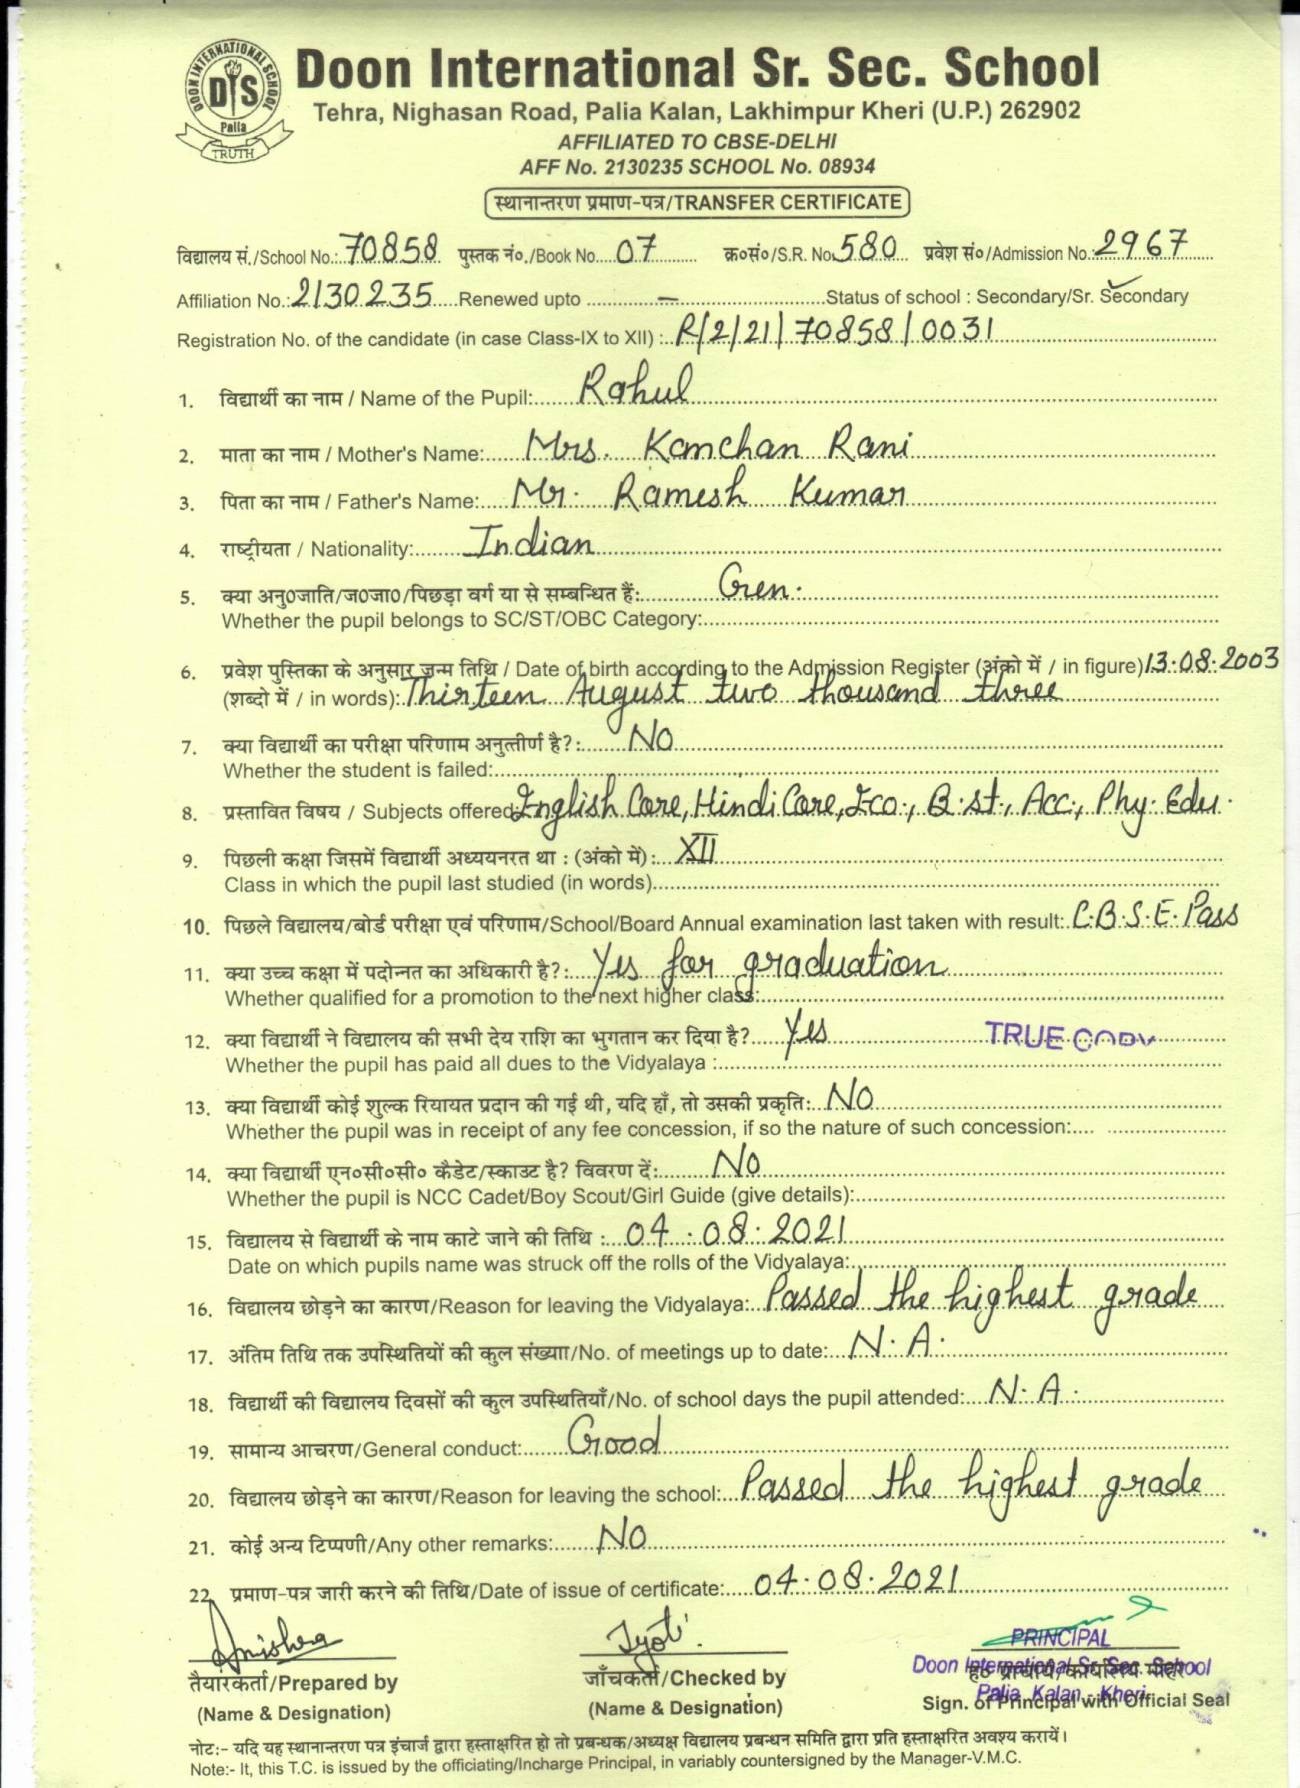 DOON INTERNATIONAL SCHOOL
DIS
Palia
TRUTH
Doon International Sr. Sec. School
Tehra, Nighasan Road, Palia Kalan, Lakhimpur Kheri (U.P.) 262902
AFFILIATED TO CBSE-DELHI
AFF No. 2130235 SCHOOL No. 08934
स्थानान्तरण प्रमाण-पत्र/TRANSFER CERTIFICATE
विद्यालय सं./School No.: 70858 पुस्तक नं०./Book No. 07 क्र०सं०/S.R. No. 580 प्रवेश सं०/Admission No.: 2967
Affiliation No.: 2130235 Renewed upto – Status of school : Secondary/Sr. Secondary
Registration No. of the candidate (in case Class-IX to XII) : R/2/21/70858/0031
1. विद्यार्थी का नाम / Name of the Pupil: Rahul
2. माता का नाम / Mother's Name: Mrs. Kanchan Rani
3. पिता का नाम / Father's Name: Mr. Ramesh Kumar
4. राष्ट्रीयता / Nationality: Indian
5. क्या अनु0जाति/ज0जा0/पिछड़ा वर्ग या से सम्बन्धित हैं: Gen.
Whether the pupil belongs to SC/ST/OBC Category:
6. प्रवेश पुस्तिका के अनुसार जन्म तिथि / Date of birth according to the Admission Register (अंको में / in figure) 13.08.2003
(शब्दो में / in words): Thirteen August two thousand three
7. क्या विद्यार्थी का परीक्षा परिणाम अनुत्तीर्ण है?: No
Whether the student is failed:
8. प्रस्तावित विषय / Subjects offered: English Core, Hindi Core, Eco., B.st., Acc., Phy. Edu.
9. पिछली कक्षा जिसमें विद्यार्थी अध्ययनरत था : (अंको में): XII
Class in which the pupil last studied (in words)
10. पिछले विद्यालय/बोर्ड परीक्षा एवं परिणाम/School/Board Annual examination last taken with result: C.B.S.E. Pass
11. क्या उच्च कक्षा में पदोन्नत का अधिकारी है?: Yes for graduation
Whether qualified for a promotion to the next higher class:
12. क्या विद्यार्थी ने विद्यालय की सभी देय राशि का भुगतान कर दिया है? Yes TRUE COPY
Whether the pupil has paid all dues to the Vidyalaya :
13. क्या विद्यार्थी कोई शुल्क रियायत प्रदान की गई थी, यदि हाँ, तो उसकी प्रकृति: No
Whether the pupil was in receipt of any fee concession, if so the nature of such concession:
14. क्या विद्यार्थी एन०सी०सी० कैडेट/स्काउट है? विवरण दें: No
Whether the pupil is NCC Cadet/Boy Scout/Girl Guide (give details):
15. विद्यालय से विद्यार्थी के नाम काटे जाने की तिथि : 04.08.2021
Date on which pupils name was struck off the rolls of the Vidyalaya:
16. विद्यालय छोड़ने का कारण/Reason for leaving the Vidyalaya: Passed the highest grade
17. अंतिम तिथि तक उपस्थितियों की कुल संख्या/No. of meetings up to date: N.A.
18. विद्यार्थी की विद्यालय दिवसों की कुल उपस्थितियाँ/No. of school days the pupil attended: N.A.
19. सामान्य आचरण/General conduct: Good
20. विद्यालय छोड़ने का कारण/Reason for leaving the school: Passed the highest grade
21. कोई अन्य टिप्पणी/Any other remarks: No
22. प्रमाण-पत्र जारी करने की तिथि/Date of issue of certificate: 04.08.2021
Jyoti
PRINCIPAL
Doon International Sr. Sec. School
Palia Kalan - Kheri
तैयारकर्ता/Prepared by जाँचकर्ता/Checked by ह० प्राचार्य/कार्यालय मोहर
(Name & Designation) (Name & Designation) Sign. of Principal with Official Seal
नोटः- यदि यह स्थानान्तरण पत्र इंचार्ज द्वारा हस्ताक्षरित हो तो प्रबन्धक/अध्यक्ष विद्यालय प्रबन्धन समिति द्वारा प्रति हस्ताक्षरित अवश्य करायें।
Note:- It, this T.C. is issued by the officiating/Incharge Principal, in variably countersigned by the Manager-V.M.C.